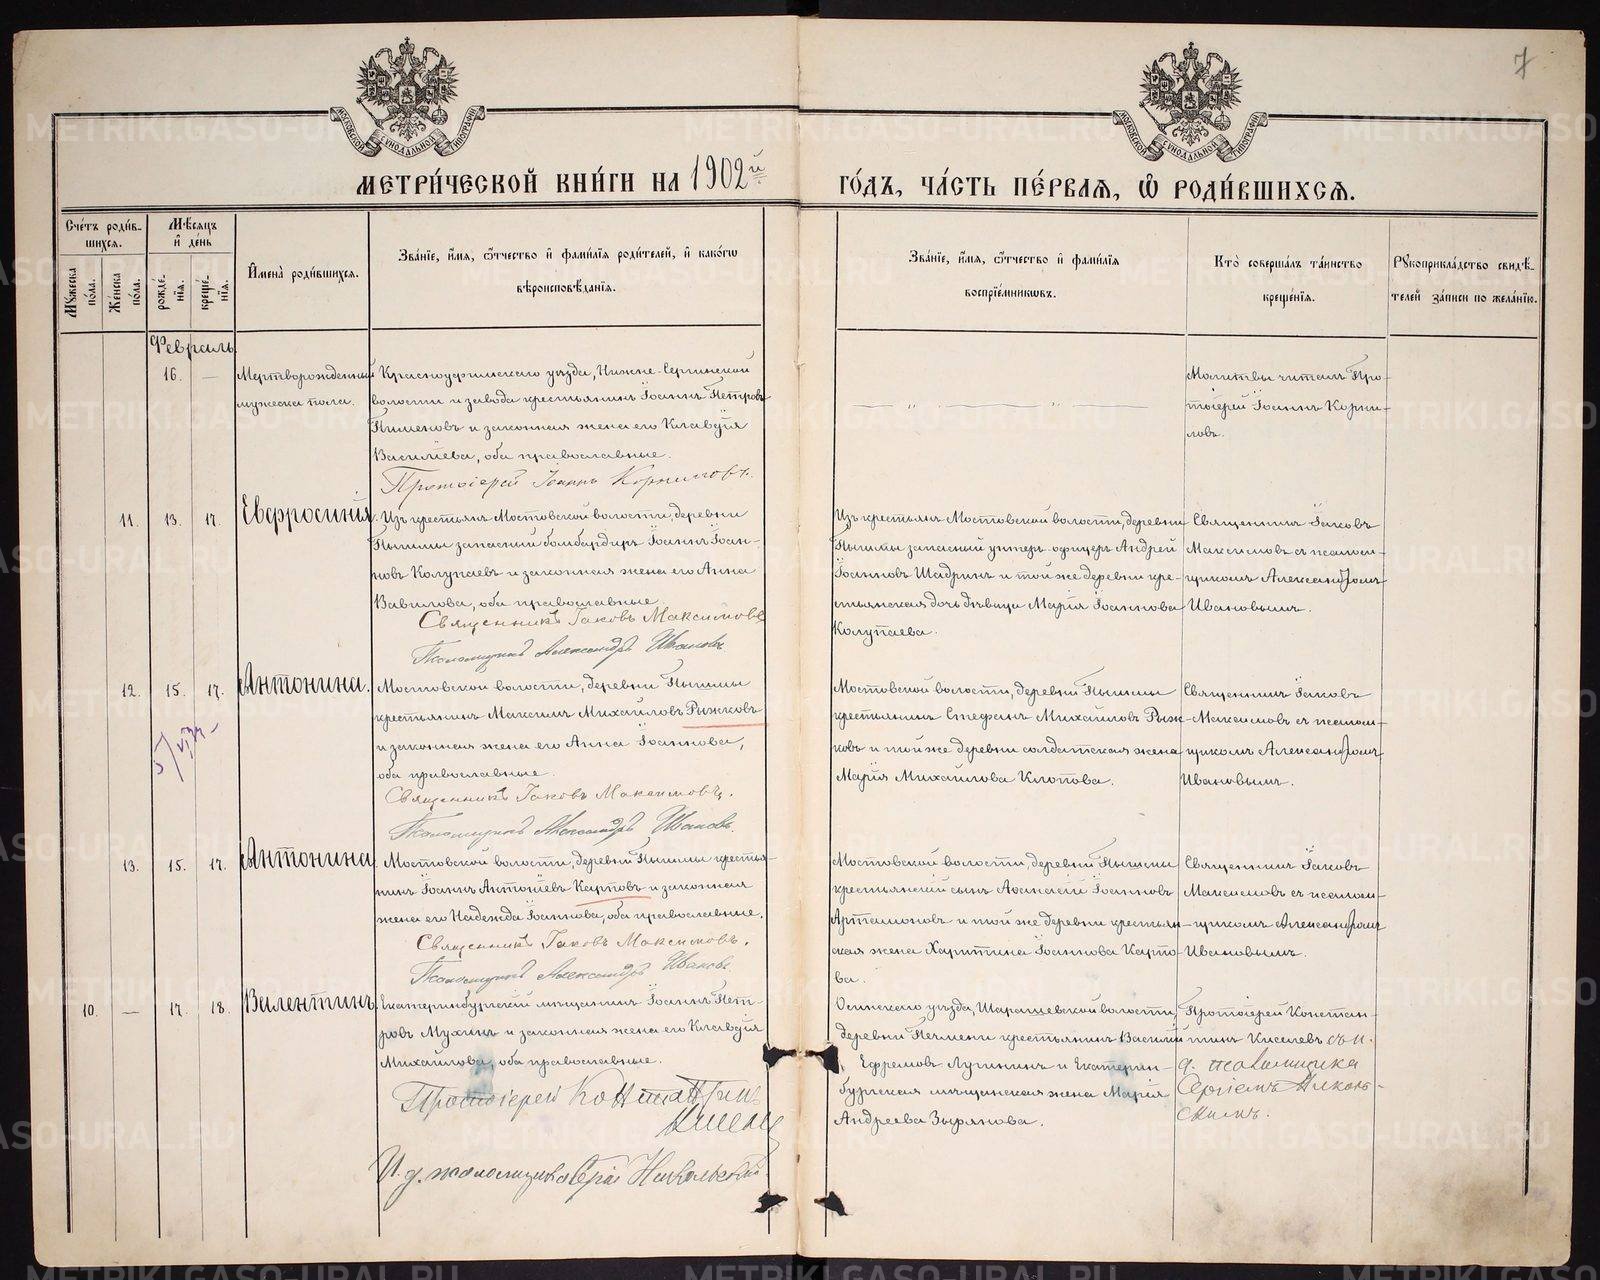 7
МОСКОВСКОЙ СУНОДАЛЬНОЙ ТИПОГРАФІИ
МОСКОВСКОЙ СУНОДАЛЬНОЙ ТИПОГРАФІИ
МЕТРИ́ЧЕСКОЙ КНИ́ГИ НА 1902й ГО́ДЪ, ЧА́СТЬ ПЕ́РВАѦ, Ѡ҆ РОДИ́ВШИХСѦ.
Сче́тъ роди́в-
шихсѧ.
Мꙋ́жеска по́ла.
Же́нска по́ла.
Мѣ́сѧцъ
и҆ де́нь
рожде́-нїѧ.
креще́-нїѧ.
И҆мена̀ роди́вшихсѧ.
Зва́нїе, и҆́мѧ, ѻ҆́тчество и҆ фами́лїѧ роди́телей, и҆ како́гѡ
вѣроисповѣ́данїѧ.
Зва́нїе, и҆́мѧ, ѻ҆́тчество и҆ фами́лїѧ
воспрїе́мникѡвъ.
Кто̀ соверша́лъ та́инство
креще́нїѧ.
Рꙋкоприкла́дство свидѣ́-
телей за́писи по жела́нїю.
Февраль.
16. —
Мертворожденный
мужеска пола.
Красноуфимскаго уѣзда, Нижне-Сергинской
волости и завода крестьянинъ Іоаннъ Петровъ
Пименовъ и законная жена его Клавдія
Василіева, оба православные.
Протоіерей Іоаннъ Корниловъ.
Молитвы читалъ Про-
тоіерей Іоаннъ Корни-
ловъ.
11. 13. 17.
Евфросинія.
Изъ крестьянъ Мостовской волости, деревни
Пышмы запасный бомбардиръ Іоаннъ Іоан-
новъ Колупаевъ и законная жена его Анна
Вавилова, оба православные.
Священникъ Іаковъ Максимовъ
Псаломщикъ Александръ Ивановъ.
Изъ крестьянъ Мостовской волости, деревни
Пышмы запасный унтеръ-офицеръ Андрей
Іоанновъ Шадринъ и той же деревни кре-
стьянская дочь дѣвица Марія Іоаннова
Колупаева.
Священникъ Іаковъ
Максимовъ съ псалом-
щикомъ Александромъ
Ивановымъ.
12. 15. 17.
Антонина.
Мостовской волости, деревни Пышмы
крестьянинъ Максимъ Михайловъ Рыжковъ
и законная жена его Анна Іоаннова,
оба православные.
Священникъ Іаковъ Максимовъ.
Псаломщикъ Александръ Ивановъ.
Мостовской волости, деревни Пышмы
крестьянинъ Стефанъ Михайловъ Рыж-
ковъ и той же деревни солдатская жена
Марія Михайлова Клопова.
Священникъ Іаковъ
Максимовъ съ псалом-
щикомъ Александромъ
Ивановымъ.
13. 15. 17.
Антонина
Мостовской волости, деревни Пышмы крестья-
нинъ Іоаннъ Антоніевъ Карповъ и законная
жена его Надежда Іоаннова, оба православные.
Священникъ Іаковъ Максимовъ.
Псаломщикъ Александръ Ивановъ.
Мостовской волости, деревни Пышмы
крестьянскій сынъ Аѳанасій Іоанновъ
Артамоновъ и той же деревни крестьян-
ская жена Харитина Іоаннова Карпо-
ва.
Священникъ Іаковъ
Максимовъ съ псалом-
щикомъ Александромъ
Ивановымъ.
10. — 17. 18.
Валентинъ
Екатеринбургскій мѣщанинъ Іоаннъ Пет-
ровъ Мухинъ и законная жена его Клавдія
Михайлова, оба православные.
Протоіерей Константинъ
Киселевъ
И. д. псаломщика Сергій Никольскій.
Осинскаго уѣзда, Шарашевской волости,
деревни Печмени крестьянинъ Василій
Ефремовъ Лупинъ и Екатерин-
бургская мѣщанская жена Марія
Андреева Зырянова.
Протоіерей Констан-
тинъ Киселевъ съ и.
д. псаломщика
Сергіемъ Николь-
скимъ.